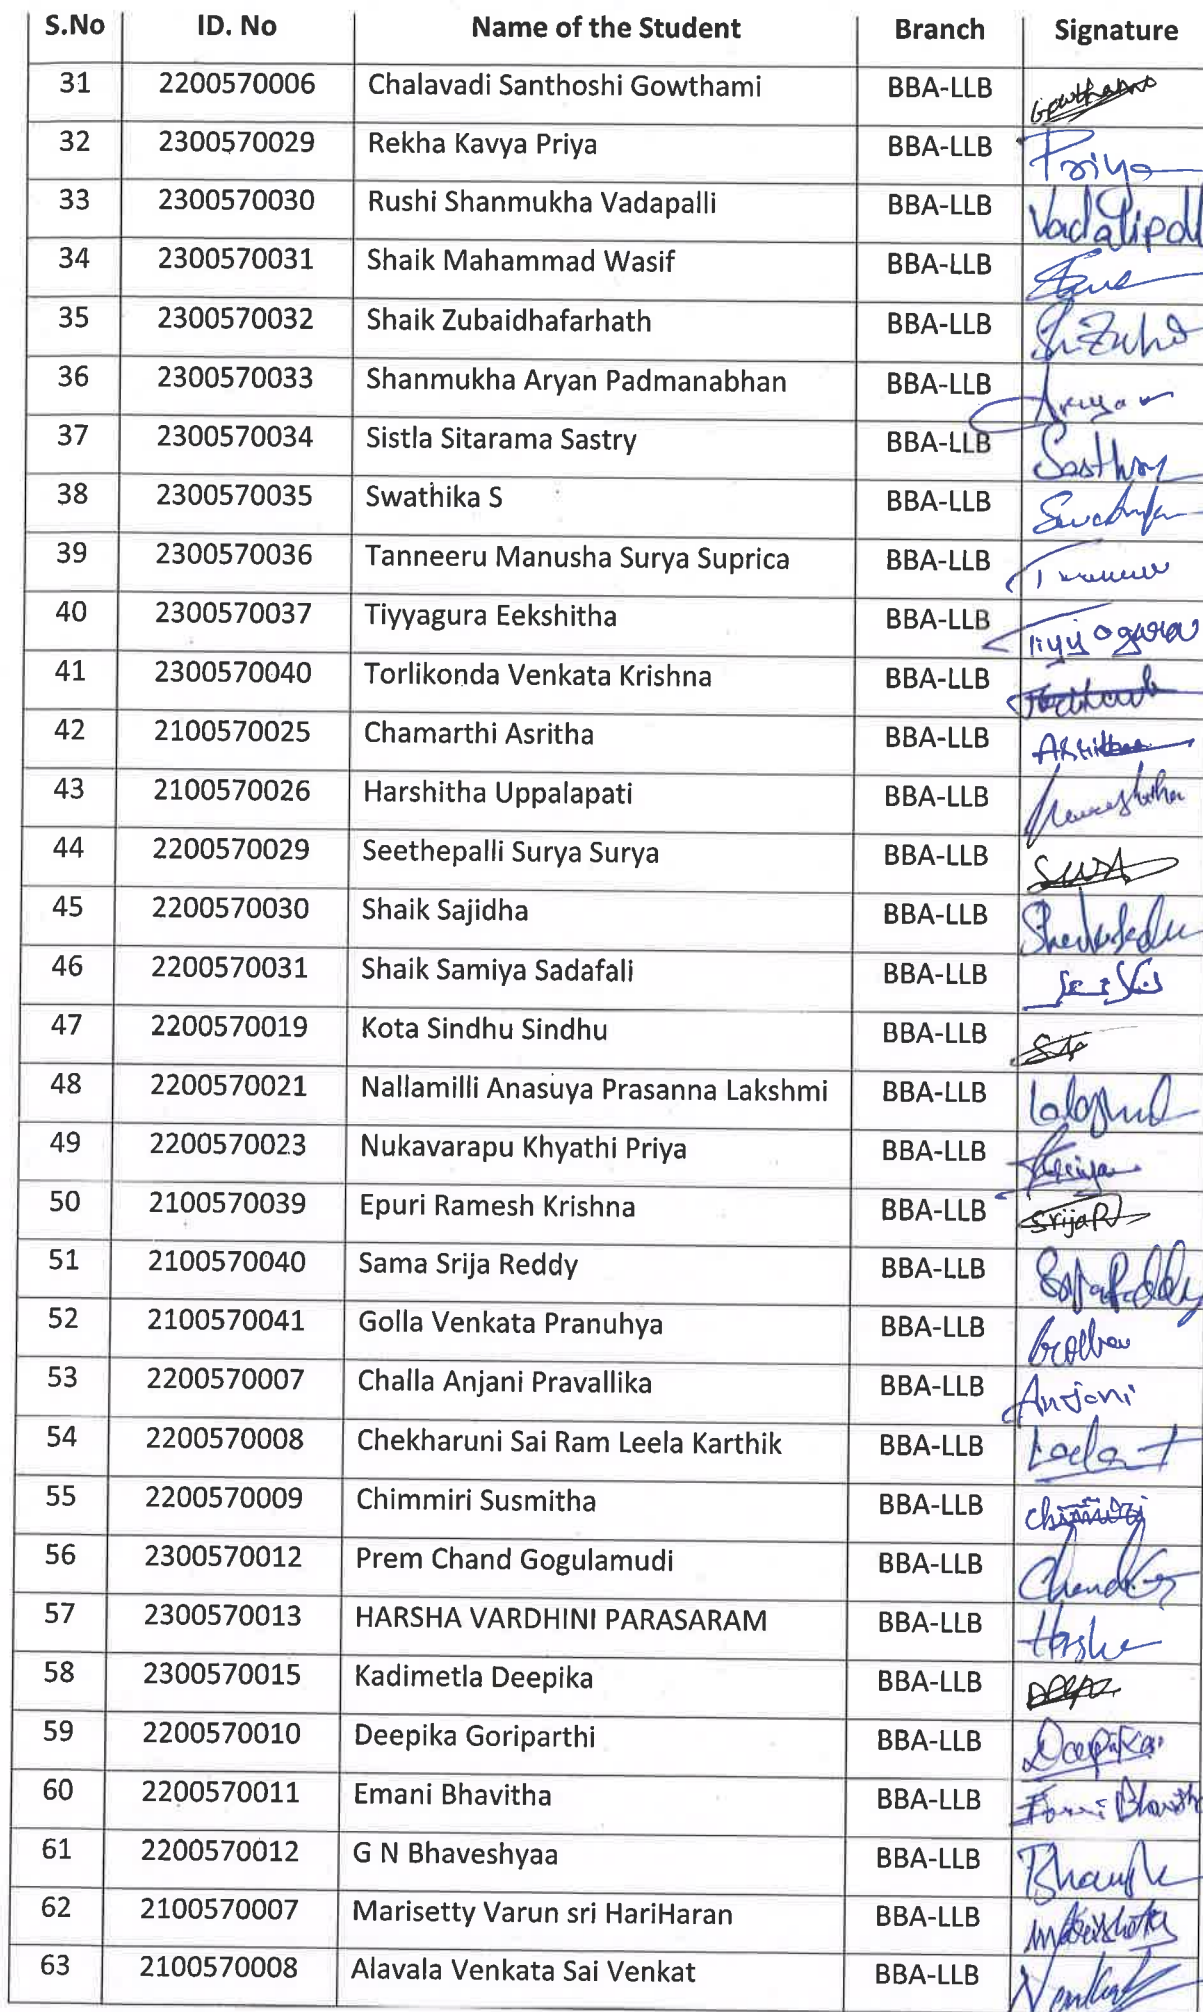 S.No ID. No Name of the Student Branch Signature
31 2200570006 Chalavadi Santhoshi Gowthami BBA-LLB Gowthami
32 2300570029 Rekha Kavya Priya BBA-LLB Priya
33 2300570030 Rushi Shanmukha Vadapalli BBA-LLB
34 2300570031 Shaik Mahammad Wasif BBA-LLB
35 2300570032 Shaik Zubaidhafarhath BBA-LLB
36 2300570033 Shanmukha Aryan Padmanabhan BBA-LLB Aryan
37 2300570034 Sistla Sitarama Sastry BBA-LLB Sasthry
38 2300570035 Swathika S BBA-LLB
39 2300570036 Tanneeru Manusha Surya Suprica BBA-LLB
40 2300570037 Tiyyagura Eekshitha BBA-LLB
41 2300570040 Torlikonda Venkata Krishna BBA-LLB
42 2100570025 Chamarthi Asritha BBA-LLB Asritha
43 2100570026 Harshitha Uppalapati BBA-LLB
44 2200570029 Seethepalli Surya Surya BBA-LLB
45 2200570030 Shaik Sajidha BBA-LLB
46 2200570031 Shaik Samiya Sadafali BBA-LLB
47 2200570019 Kota Sindhu Sindhu BBA-LLB
48 2200570021 Nallamilli Anasuya Prasanna Lakshmi BBA-LLB
49 2200570023 Nukavarapu Khyathi Priya BBA-LLB
50 2100570039 Epuri Ramesh Krishna BBA-LLB SrijaR
51 2100570040 Sama Srija Reddy BBA-LLB
52 2100570041 Golla Venkata Pranuhya BBA-LLB
53 2200570007 Challa Anjani Pravallika BBA-LLB Anjani
54 2200570008 Chekharuni Sai Ram Leela Karthik BBA-LLB
55 2200570009 Chimmiri Susmitha BBA-LLB
56 2300570012 Prem Chand Gogulamudi BBA-LLB
57 2300570013 HARSHA VARDHINI PARASARAM BBA-LLB
58 2300570015 Kadimetla Deepika BBA-LLB
59 2200570010 Deepika Goriparthi BBA-LLB Deepika
60 2200570011 Emani Bhavitha BBA-LLB
61 2200570012 G N Bhaveshyaa BBA-LLB
62 2100570007 Marisetty Varun sri HariHaran BBA-LLB
63 2100570008 Alavala Venkata Sai Venkat BBA-LLB